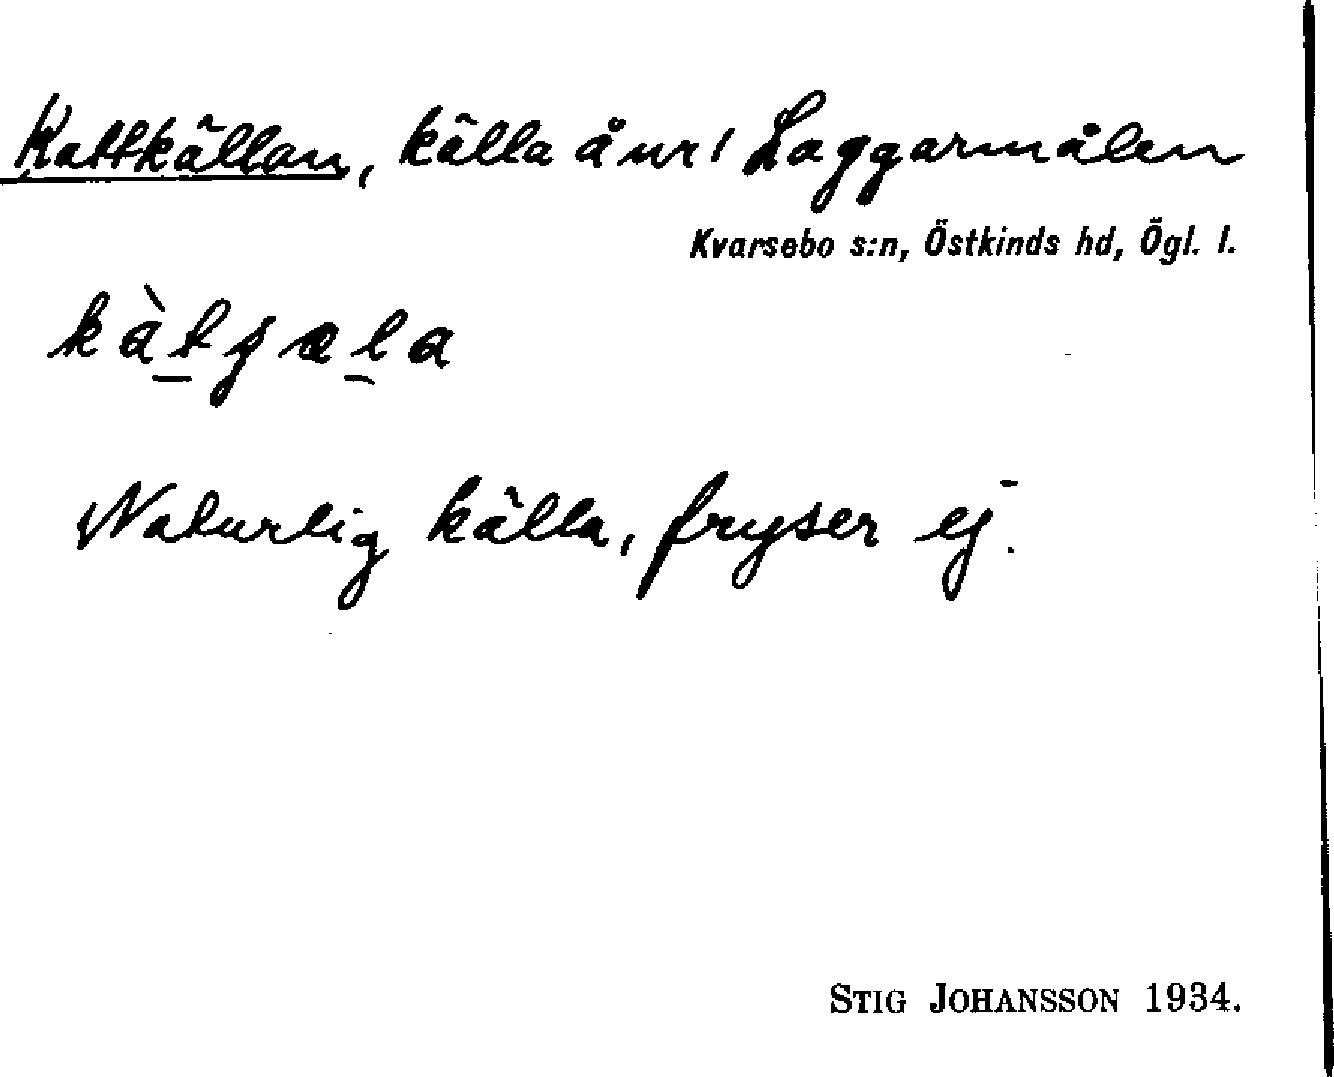 Kattkällan, källa å nr 1 Laggarmålen
Kvarsebo s:n, Östkinds hd, Ögl. l.
Naturlig källa, fryser ej.
STIG JOHANSSON 1934.